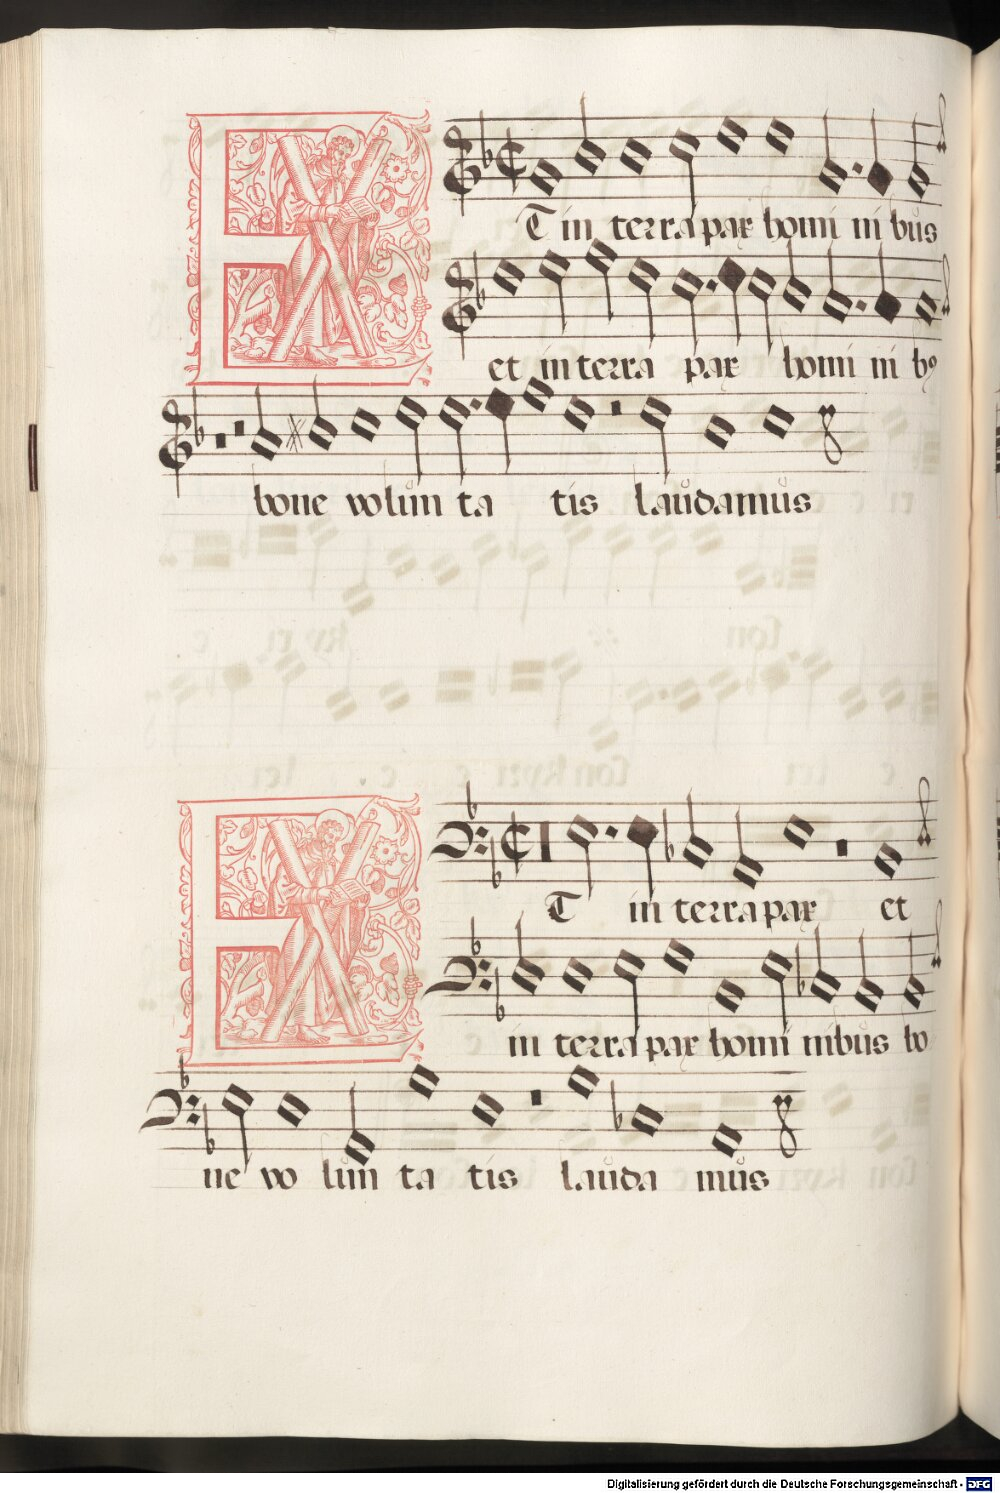 ET in terra pax homi ni bus
et in terra pax homi ni bꝰ
bone volun ta tis laudamus
ET in terra pax et
in terra pax homi nibus bo
ne vo lun ta tis lauda mus
Digitalisierung gefördert durch die Deutsche Forschungsgemeinschaft - DFG